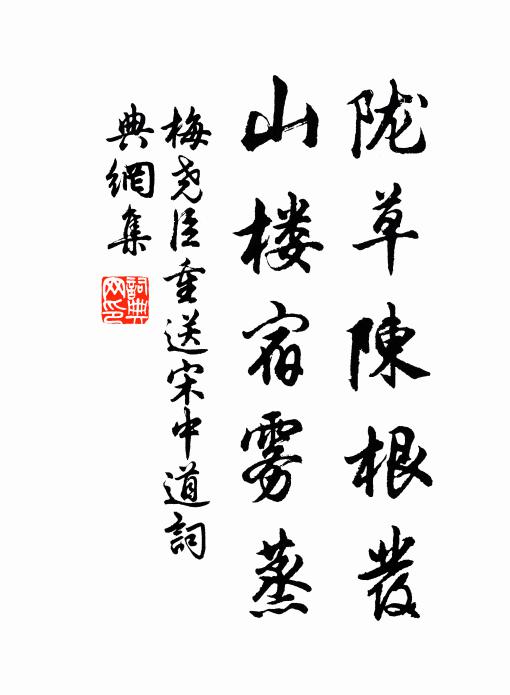 陇草陳根發
山楼宿雾蒸
梅尧臣重送宋中道詞
典網集
詞典
网印